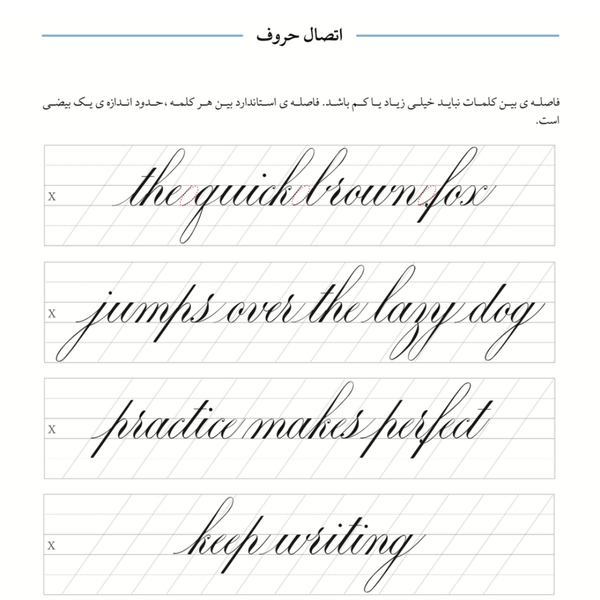 اتصال حروف
فاصله ی بین کلمات نباید خیلی زیاد یا کم باشد. فاصله ی استاندارد بین هر کلمه ، حدود اندازه ی یک بیضی
است.
x the quick brown fox
x jumps over the lazy dog
x practice makes perfect
x keep writing